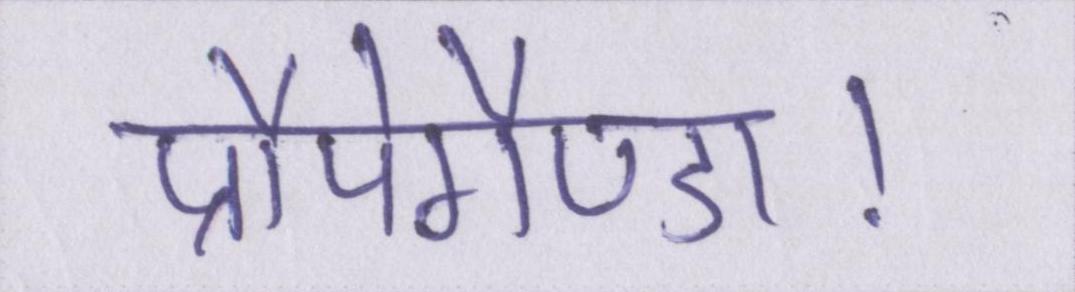 प्रौपेगैण्डा!